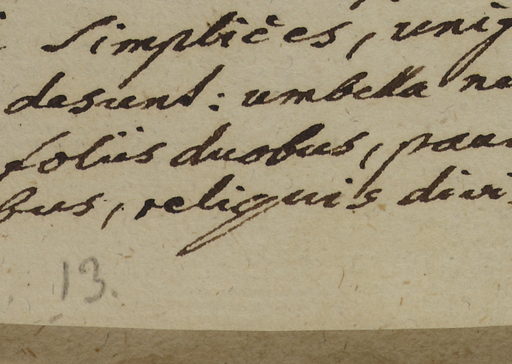 simplices, unig
desunt: umbella ne
foliis duobus, pau
bus, reliquis divi
13.